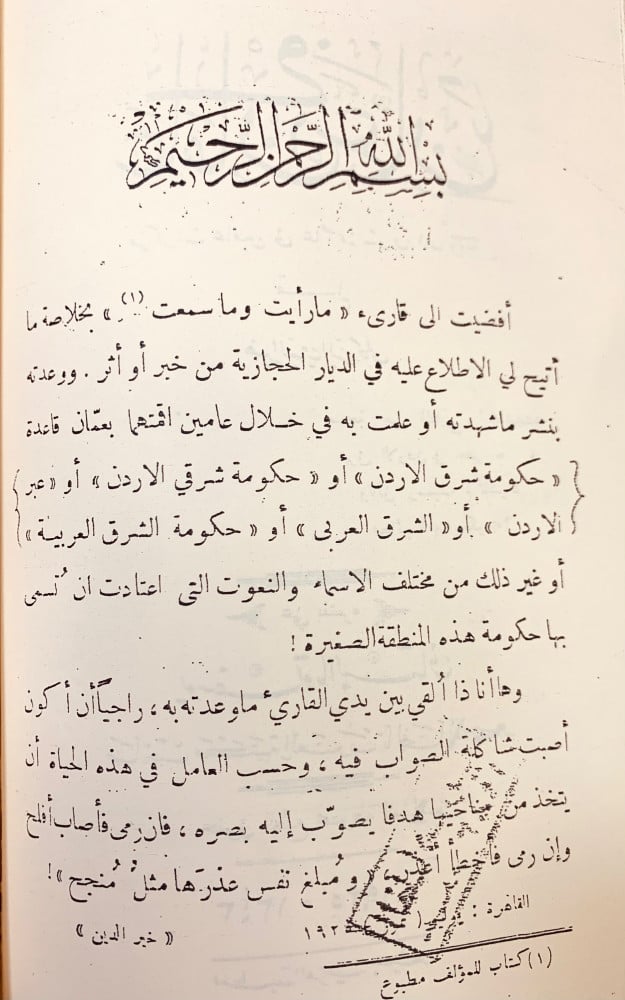 بسم الله الرحمن الرحيم
أفضيت الى قارىء « مارأيت وما سمعت (١) » بخلاصة ما
أتيح لي الاطلاع عليه في الديار الحجازية من خبر أو أثر . ووعدته
بنشر ماشهدته أو علمت به في خلال عامين اقمتهما بعمّان قاعدة
« حكومة شرق الاردن » أو « حكومة شرقي الاردن » أو « عبر
الاردن » أو « الشرق العربى » أو « حكومة الشرق العربية »
أو غير ذلك من مختلف الاسماء والنعوت التى اعتادت ان تُسمى
بها حكومة هذه المنطقة الصغيرة !
وها أنا ذا أُلقي بين يدي القاريء ماوعدته به ، راجياً أن أكون
أصبت شاكلة الصواب فيه ، وحسب العامل في هذه الحياة أن
يتخذ من مناحيها هدفا يصوّب إليه بصره ، فان رمى فأصاب أفلح
وإن رمى فأخطأ أعذر ، « ومُبلغ نفس عذرَها مثلُ مُنجح » !
القاهرة : ١٩٢
« خير الدين »
(١) كتاب للمؤلف مطبوع